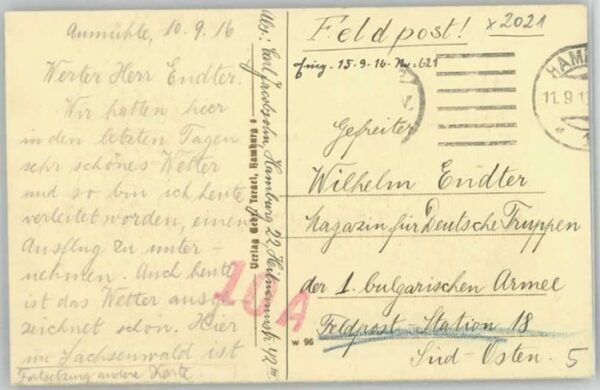 Aumühle, 10.9.16
Werter Herr Endter.
Wir hatten hier
in den letzten Tagen
sehr schönes Wetter
und so bin ich heute
verleitet worden, einen
Ausflug zu unter-
nehmen. Auch heute
ist das Wetter ausge
zeichnet schön. Hier
im Sachsenwald ist
Fortsetzung andere Karte.
Abs: Carl Jacobsohn, Hamburg 22,
Verlag Hamburg
10A
w 96
Feldpost!
x2021
eing. 15.9.16. No: 621
HAM
11.9.1
Gefreiter
Wilhelm Endter
Magazin für Deutsche Truppen
der 1. bulgarischen Armee
Feldpost-Station 18
Süd-Osten.
5